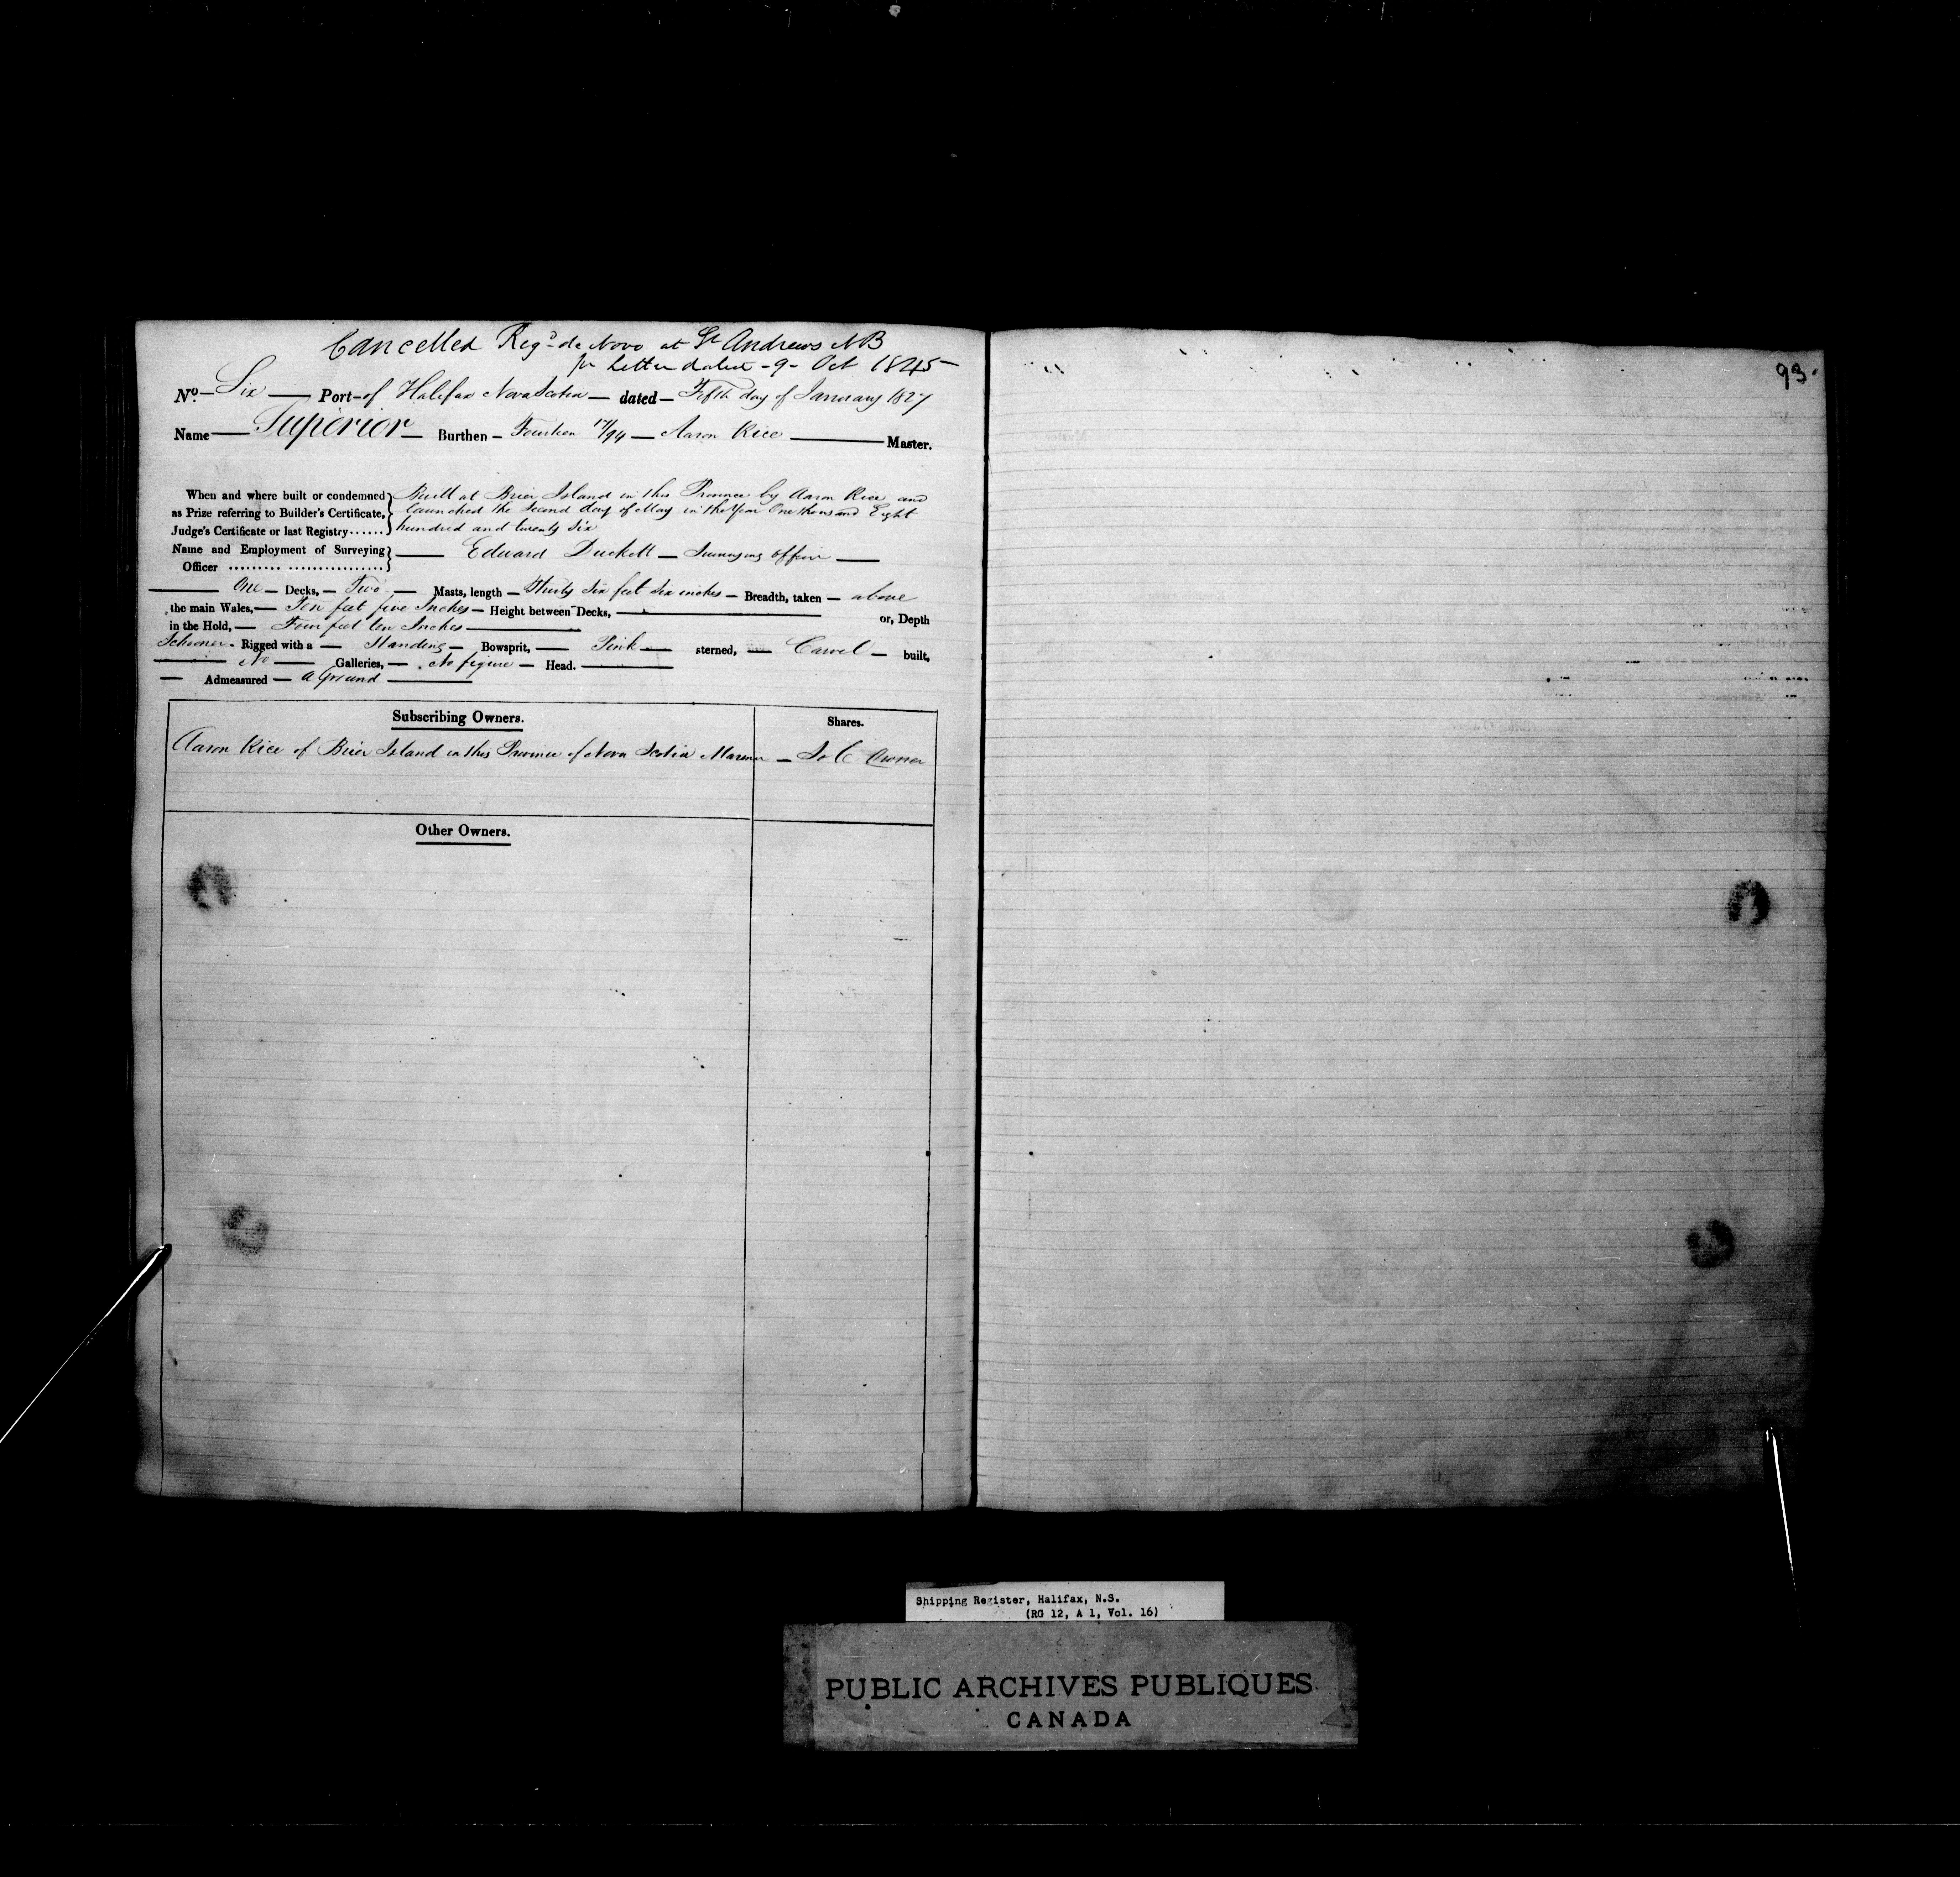 Cancelled Reg.d de Novo at St Andrews NB
pr Letter dated - 9 - Oct 1845 -
No. - Six - Port - of Halifax Nova Scotia - dated - Fifth day of January 1827
Name - Superior - Burthen - Fourteen 17/94 - Aaron Rice - Master.
When and where built or condemned } Built at Brier Island in this Province by Aaron Rice and
as Prize referring to Builder's Certificate, launched the Second day of May in the Year One thousand Eight
Judge's Certificate or last Registry...... hundred and twenty Six
Name and Employment of Surveying } - Edward Duckett - Surveying officer -
Officer ......... ................
One - Decks, - Two - Masts, length - Thirty Six feet Six inches - Breadth, taken - above
the main Wales, - Ten feet five Inches - Height between Decks, - or, Depth
in the Hold, - Four feet ten Inches -
Schooner - Rigged with a - Standing - Bowsprit, - Pink - sterned, - Carvel - built,
- No - Galleries, - No figure - Head. -
- Admeasured - a Ground -
Subscribing Owners. Shares.
Aaron Rice of Brier Island in this Province of Nova Scotia Mariner - Sole Owner
Other Owners.
93.
Shipping Register, Halifax, N.S.
(RG 12, A 1, Vol. 16)
PUBLIC ARCHIVES PUBLIQUES
CANADA